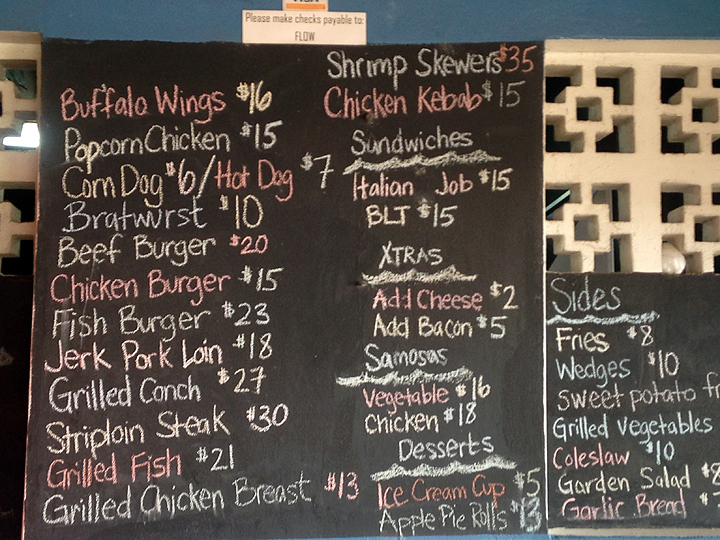 Please make checks payable to:
FLOW
Buffalo Wings $16
Popcorn Chicken $15
Corn Dog $6/Hot Dog $7
Bratwurst $10
Beef Burger $20
Chicken Burger $15
Fish Burger $23
Jerk Pork Loin $18
Grilled Conch $27
Striploin Steak $30
Grilled Fish $21
Grilled Chicken Breast $13
Shrimp Skewers $35
Chicken Kebab $15
Sundwiches
Italian Job $15
BLT $15
XTRAS
Add Cheese $2
Add Bacon $5
Samosas
Vegetable $16
Chicken $18
Desserts
Ice Cream Cup $5
Apple Pie Rolls $13
Sides
Fries $8
Wedges $10
Sweet potato
Grilled Vegetables
Coleslaw $10
Garden Salad
Garlic Bread